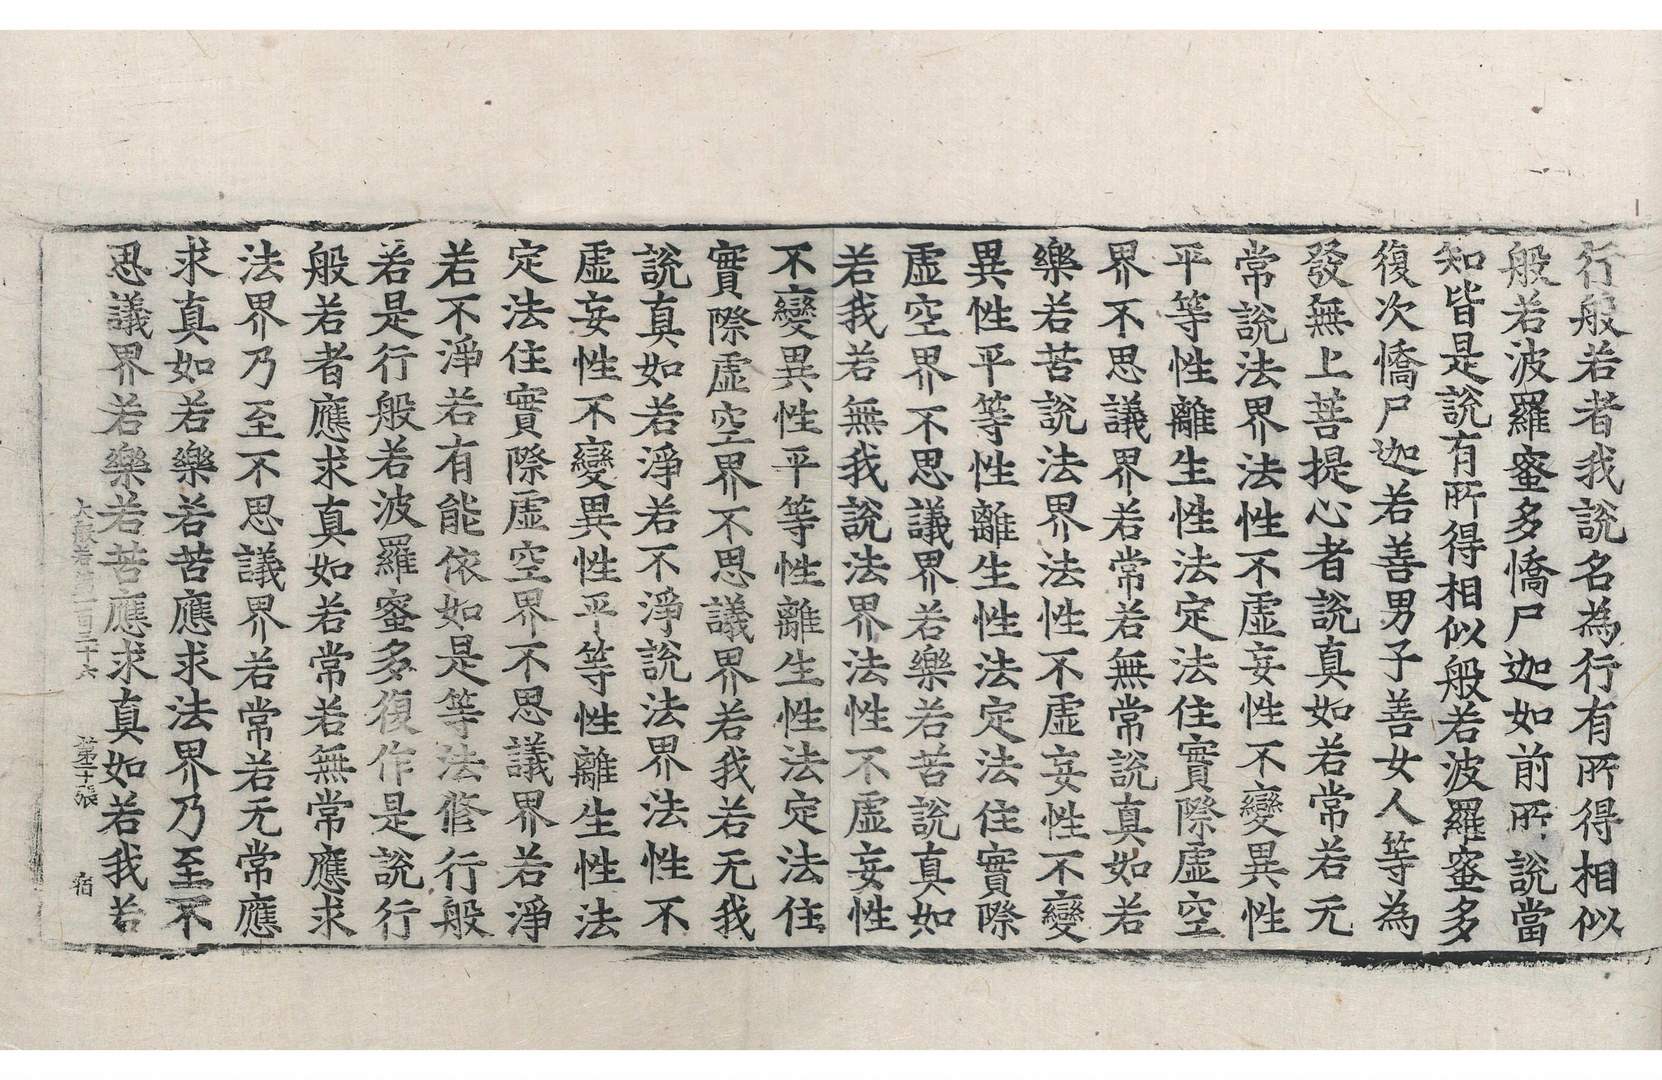 行般若者我說名為行有所得相似
般若波羅蜜多憍尸迦如前所說當
知皆是說有所得相似般若波羅蜜多
復次憍尸迦若善男子善女人等為
發無上菩提心者說真如若常若无
常說法界法性不虛妄性不變異性
平等性離生性法定法住實際虛空
界不思議界若常若無常說真如若
樂若苦說法界法性不虛妄性不變
異性平等性離生性法定法住實際
虛空界不思議界若樂若苦說真如
若我若無我說法界法性不虛妄性
不變異性平等性離生性法定法住
實際虛空界不思議界若我若无我
說真如若淨若不淨說法界法性不
虛妄性不變異性平等性離生性法
定法住實際虛空界不思議界若淨
若不淨若有能依如是等法修行般
若是行般若波羅蜜多復作是說行
般若者應求真如若常若無常應求
法界乃至不思議界若常若无常應
求真如若樂若苦應求法界乃至不
思議界若樂若苦應求真如若我若
大般若第一百三十六 第二十張 宿